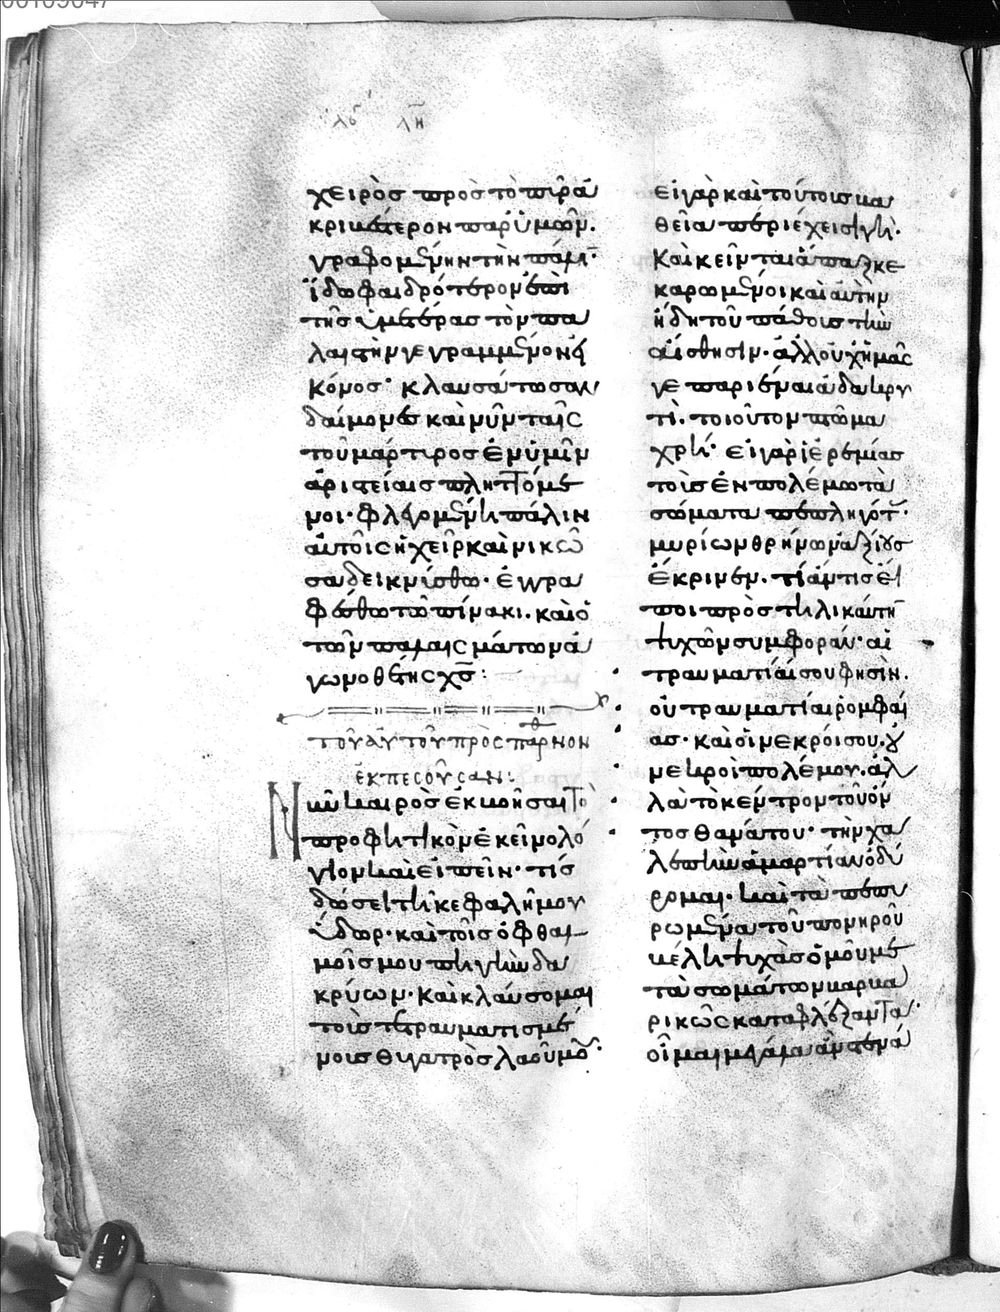 χειρὸσ πρὸσ τὸ πικρὰ
κρυπτότερον παρ' ὑμῶν.
γραφομένην τὴν πάλην·
ἴδω φαιδρότερον ἐπὶ
τῆσ ὑμετέρασ τὸν πα
λαιστὴν γεγραμμένον εἰ
κόνοσ· κλαυσάτωσαν
δαίμονεσ καὶ νῦν ταῖς
τοῦ μάρτυροσ ἐν ὑμῖν
ἀριστείαισ πληττόμε
νοι· φλεγομένη πάλιν
αὐτοῖς ἡ χεὶρ καὶ νικῶ
σα δεικνύσθω· ἐγγρα
φέσθω τῶ πίνακι. καὶ ὁ
τῶν παλαισμάτων ἀ
γωνοθέτης χ̅ς̅:
τοῦ αὐτοῦ πρὸς παρθένον
ἐκπεσοῦσαν:
Νῦν καιρὸσ ἐκβοῆσαι τὸ
προφητικὸν ἐκεῖνο λό
γιον καὶ εἰπεῖν· τίσ
δώσει τῆ κεφαλῆ μου
ὕδωρ· καὶ τοῖσ ὀφθαλ
μοῖσ μου πηγὴν δα
κρύων· καὶ κλαύσομαι
τοὺσ τετραυματισμέ
νουσ θυγατρὸσ λαοῦ μου·
εἰ γὰρ καὶ τούτουσ βα
θεῖα περιέχει σιγή·
καὶ κεῖνται ἅπαξ κε
καρωμένοι καὶ αὐτὴν
ἤδη τοῦ πάθουσ τὴν
αἴσθησιν· ἀλλ' οὐχ ἡμᾶς
γε παριέναι ἀδακρυ
τὶ. τοιοῦτον πτῶμα
χρή· εἰ γὰρ ἱερεμίασ
τοὺσ ἐν πολέμω τὰ
σώματα πεπληγότασ·
μυρίων θρήνων ἀξίουσ
ἔκρινεν. τί ἄν τισ εἴ
ποι πρὸσ τηλικαύτην
ψυχῶν συμφοράν· οἱ
τραυματίαι σου φησὶν.
οὐ τραυματίαι ῥομφαί
ασ· καὶ οἱ νεκροί σου. οὐ
νεκροὶ πολέμου. ἀλ
λὰ τὸ κέντρον τοῦ ὄν
τοσ θανάτου· τὴν χα
λεπὴν ἁμαρτίαν ὀδύ
ρομαι· καὶ τὰ πεπυ
ρωμένα τοῦ πονηροῦ
βέλη ψυχὰσ ὁμοῦ με
τὰ σωμάτων βαρβα
ρικῶς καταφλέξαντα·